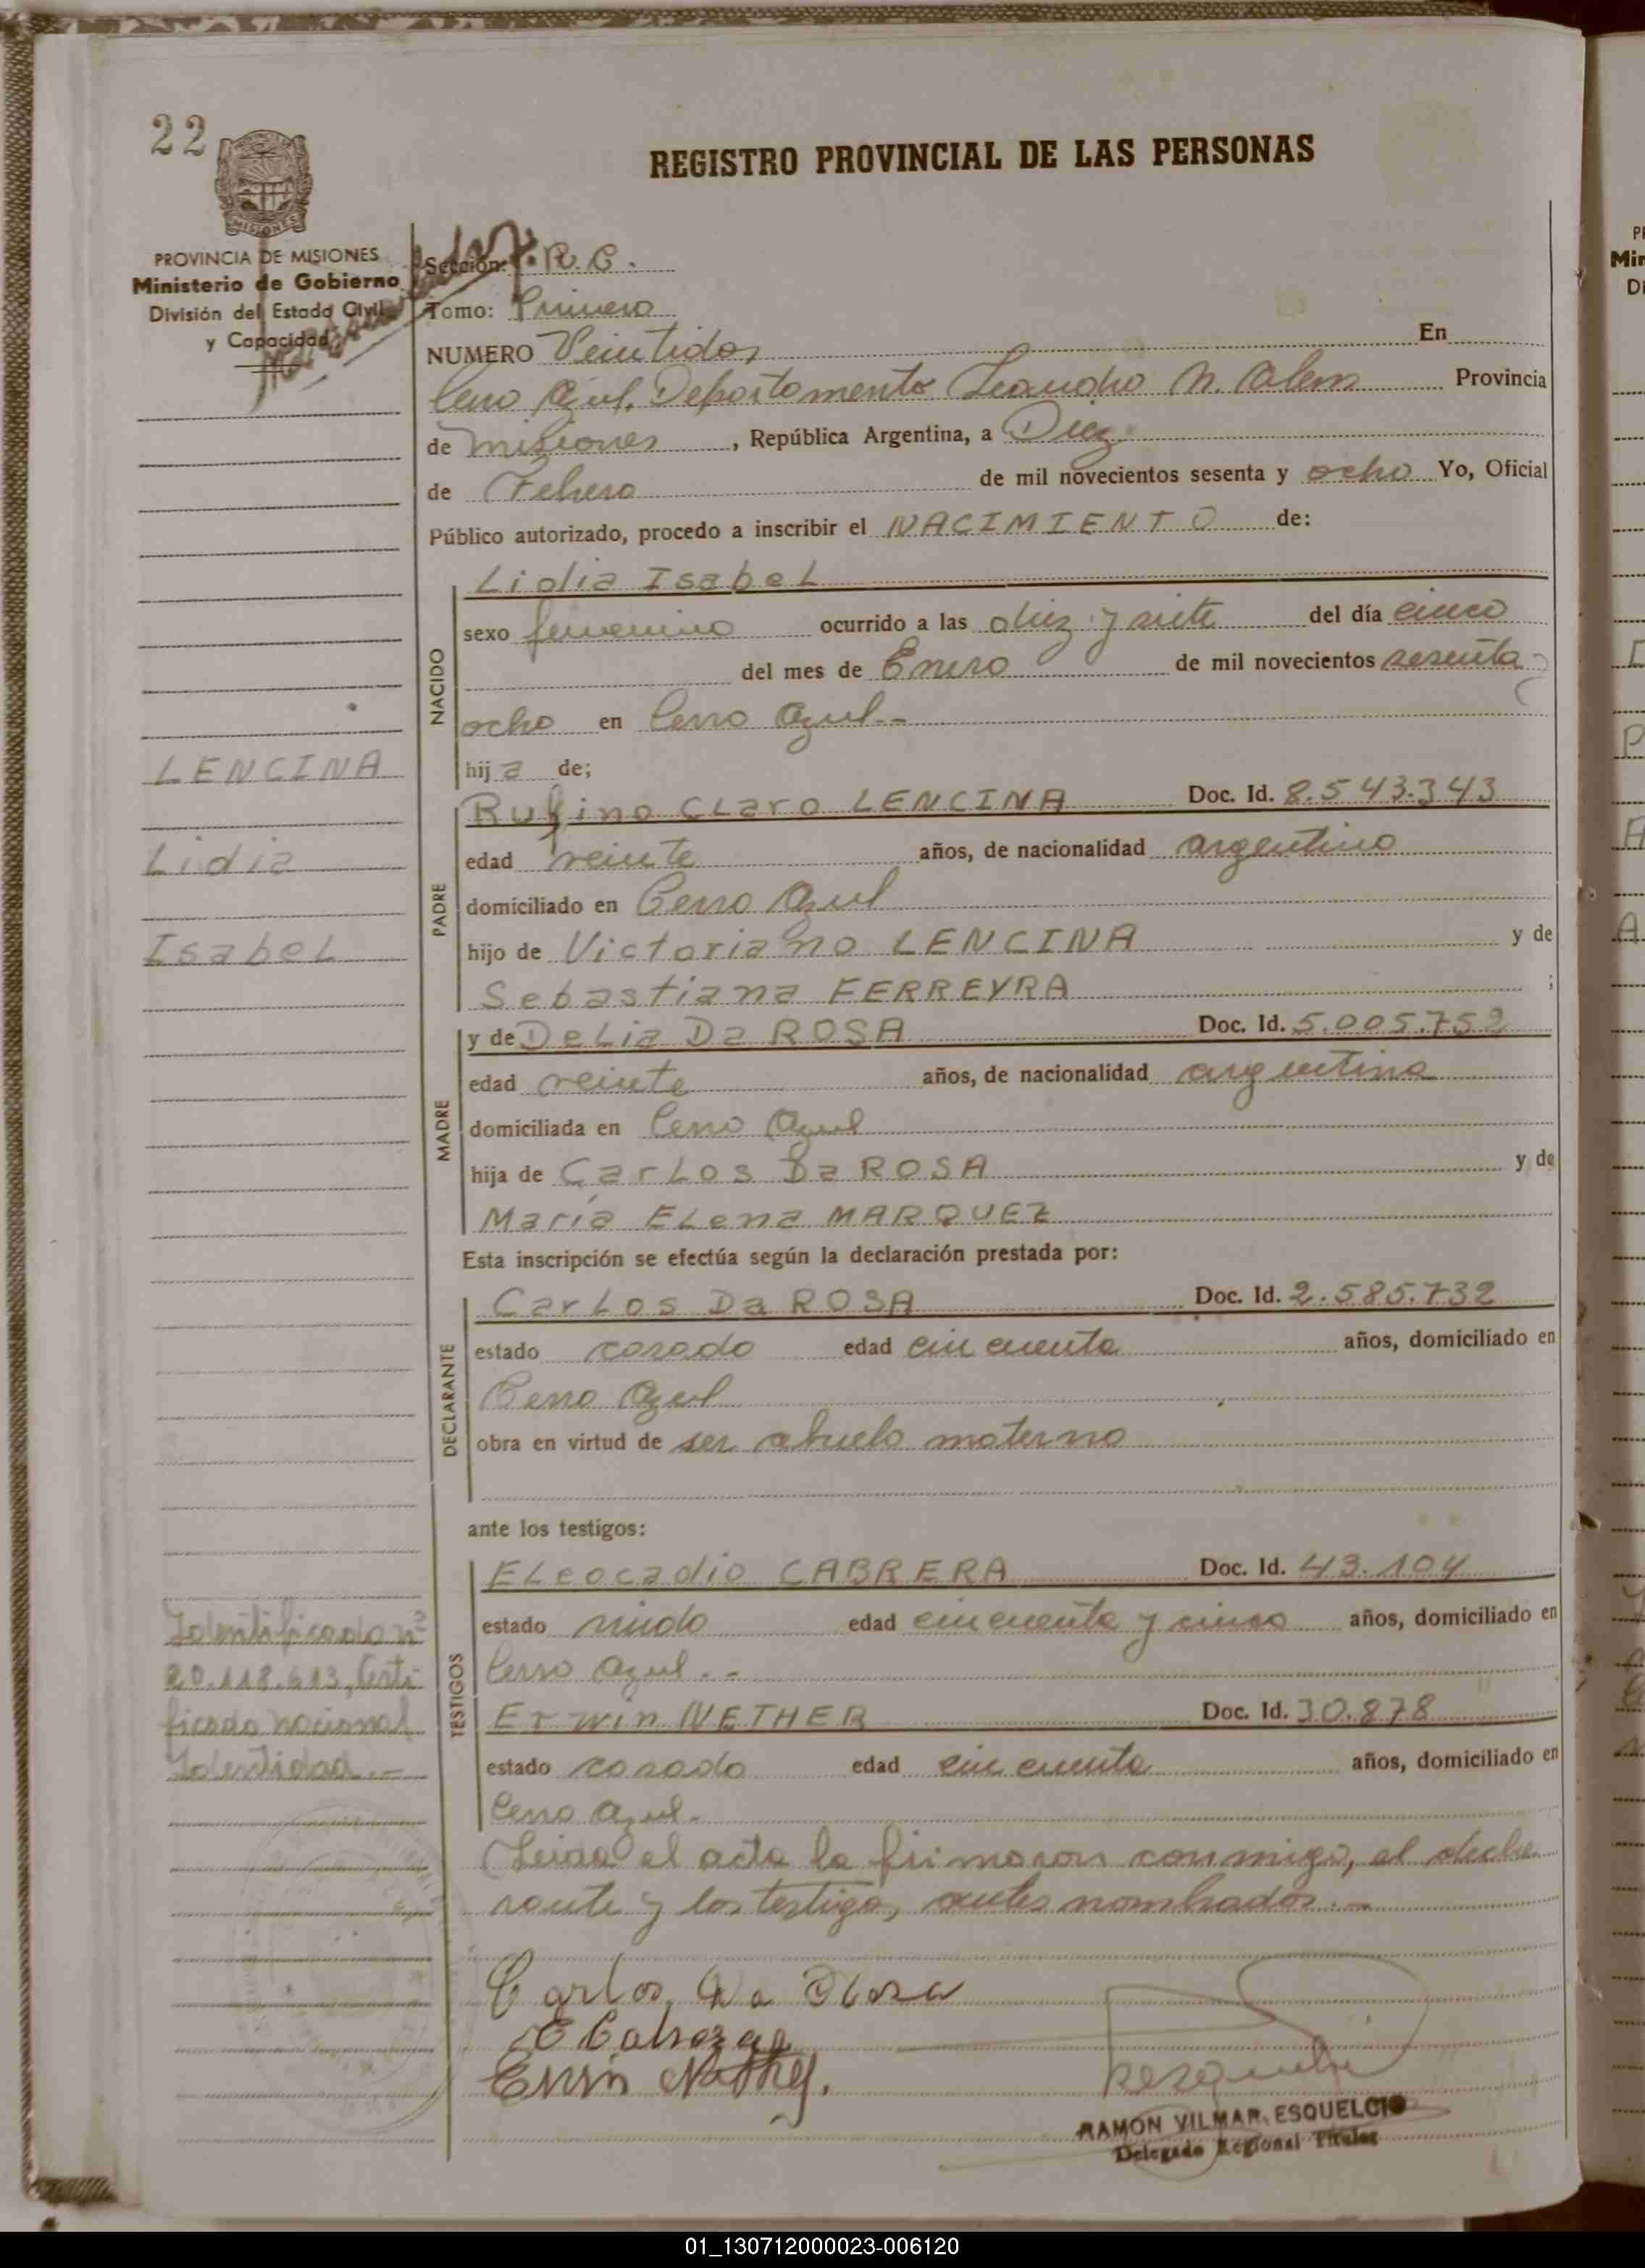 22
REGISTRO PROVINCIAL DE LAS PERSONAS
MISIONES
PROVINCIA DE MISIONES
Ministerio de Gobierno
División del Estado Civil
y Capacidad
Sección: R. C.
Tomo: Primero
NUMERO Veintidos En
Cerro Azul, Departamento Leandro N. Alem Provincia
de Misiones, República Argentina, a Diez
de Febrero de mil novecientos sesenta y ocho Yo, Oficial
Público autorizado, procedo a inscribir el NACIMIENTO de:
Lidia Isabel
NACIDO
sexo femenino ocurrido a las diez y siete del día cinco
del mes de Enero de mil novecientos sesenta y
ocho en Cerro Azul.-
hija de;
LENCINA
Lidia
Isabel
PADRE
Rufino Claro LENCINA Doc. Id. 8.543.343
edad veinte años, de nacionalidad argentino
domiciliado en Cerro Azul
hijo de Victoriano LENCINA y de
Sebastiana FERREYRA ;
MADRE
y de Delia Da ROSA Doc. Id. 5.005.759
edad veinte años, de nacionalidad argentina
domiciliada en Cerro Azul
hija de Carlos Da ROSA y de
María Elena MARQUEZ
Esta inscripción se efectúa según la declaración prestada por:
DECLARANTE
Carlos Da ROSA Doc. Id. 2.585.732
estado casado edad cincuenta años, domiciliado en
Cerro Azul
obra en virtud de ser abuelo materno
ante los testigos:
TESTIGOS
Eleocadio CABRERA Doc. Id. 43.104
estado viudo edad cincuenta y cinco años, domiciliado en
Cerro Azul.-
Erwin NETHER Doc. Id. 30.878
estado casado edad cincuenta años, domiciliado en
Cerro Azul.-
Identificado nº
20.118.613, Certi
ficado nacional
Identidad.-
Leida el acta la firmaron conmigo, el decla
rante y los testigo, antes nombrados.-
Carlos Da Rosa
E Cabrera
Ervin Nether.
RAMON VILMAR ESQUELCIO
Delegado Regional Titular
01_130712000023-006120